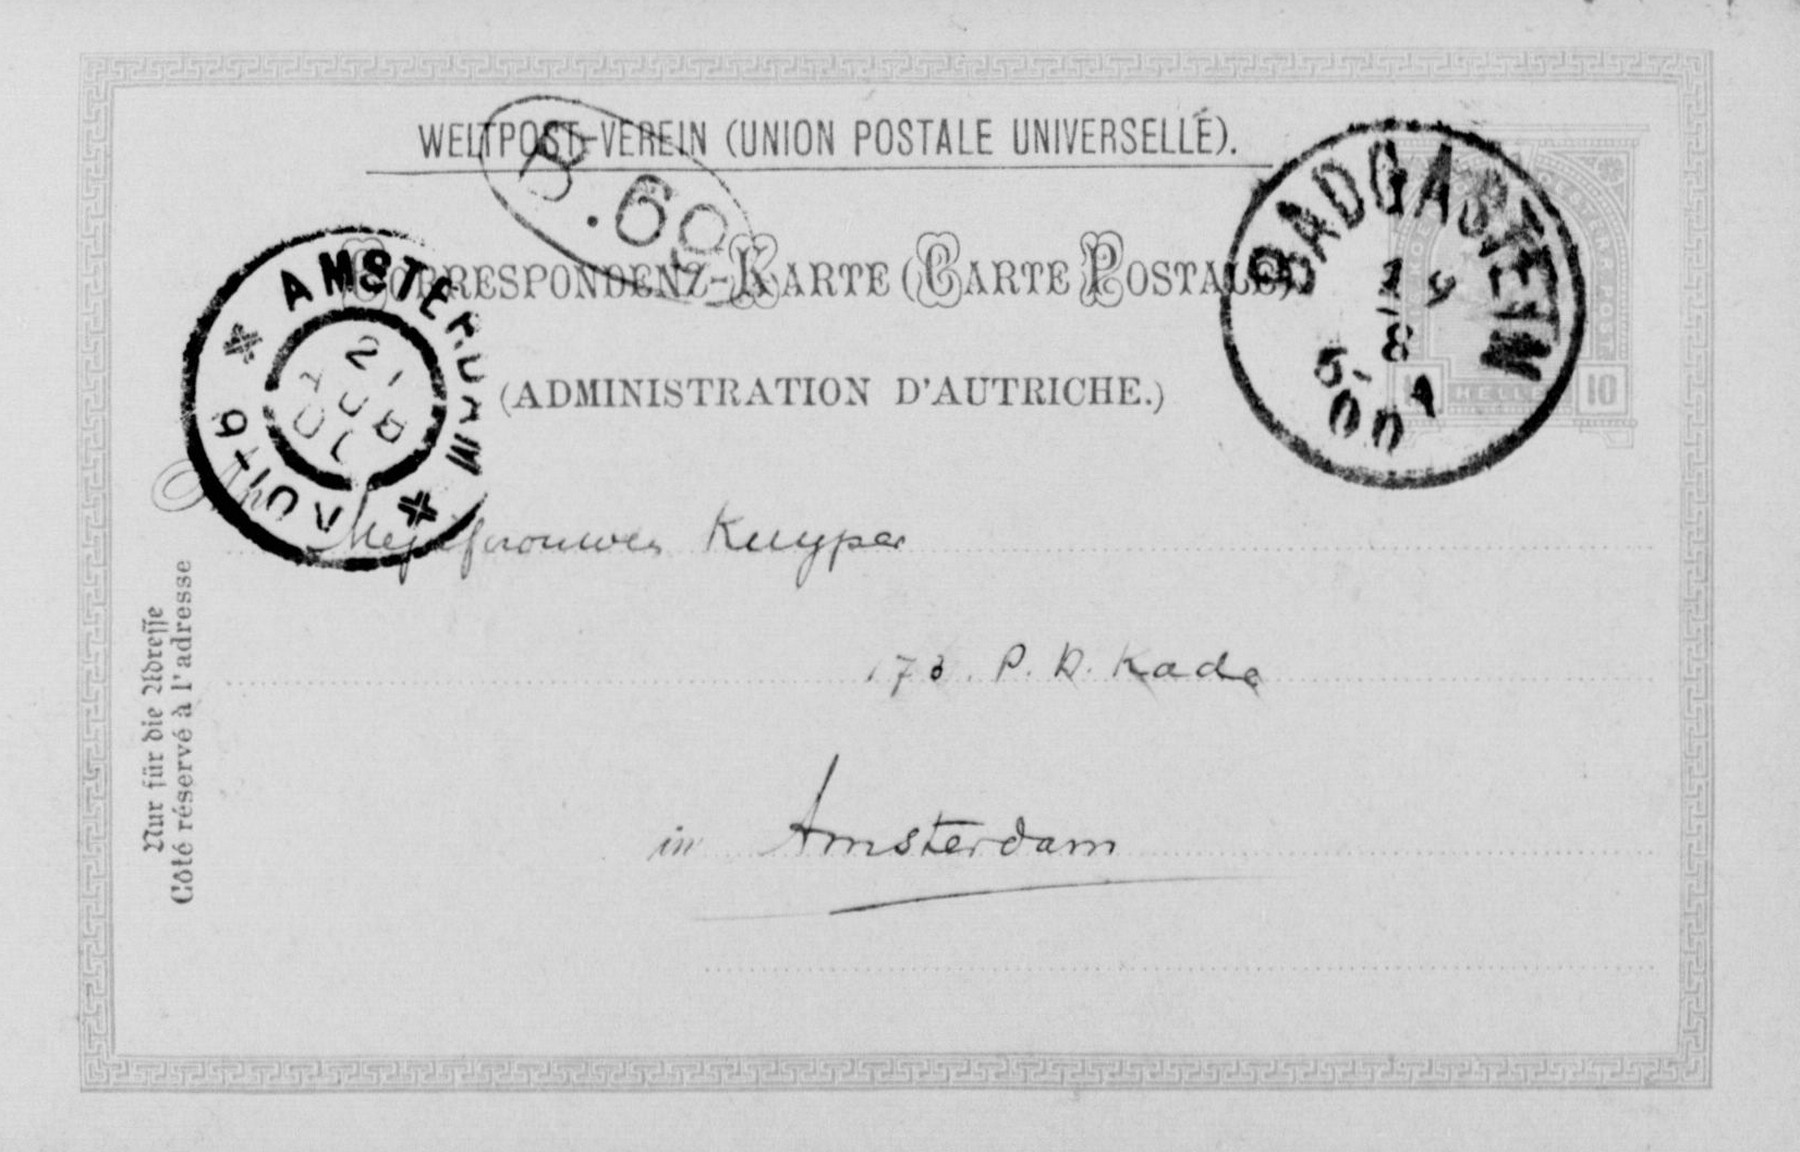 WELTPOST-VEREIN (UNION POSTALE UNIVERSELLE).
B.69
CORRESPONDENZ-KARTE (CARTE POSTALE).
(ADMINISTRATION D'AUTRICHE.)
BADGASTEIN
19
8
5-A
00
HELLER
10
AMSTERDAM
21
AUG
An
Mejufvrouwen Kuyper
173. P. H. Kade
in Amsterdam
Nur für die Adresse
Côté réservé à l'adresse